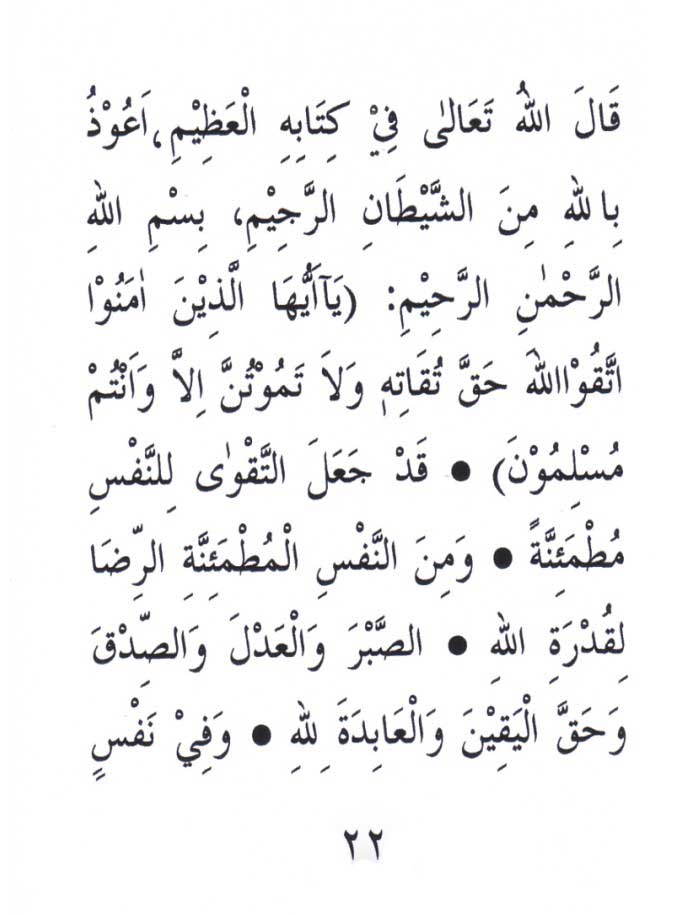 قَالَ اللهُ تَعَالٰى فِيْ كِتَابِهِ الْعَظِيْمِ، اَعُوْذُ
بِاللهِ مِنَ الشَّيْطَانِ الرَّجِيْمِ، بِسْمِ اللهِ
الرَّحْمٰنِ الرَّحِيْمِ: (يَآاَيُّهَا الَّذِيْنَ اٰمَنُوْا
اتَّقُوْااللهَ حَقَّ تُقَاتِهٖ وَلاَ تَمُوْتُنَّ اِلاَّ وَاَنْتُمْ
مُسْلِمُوْنَ) ● قَدْ جَعَلَ التَّقْوٰى لِلنَّفْسِ
مُطْمَئِنَّةً ● وَمِنَ النَّفْسِ الْمُطْمَئِنَّةِ الرِّضَا
لِقُدْرَةِ اللهِ ● الصَّبْرَ وَالْعَدْلَ وَالصِّدْقَ
وَحَقَّ الْيَقِيْنَ وَالْعَابِدَةَ لِلهِ ● وَفِيْ نَفْسٍ
٢٢